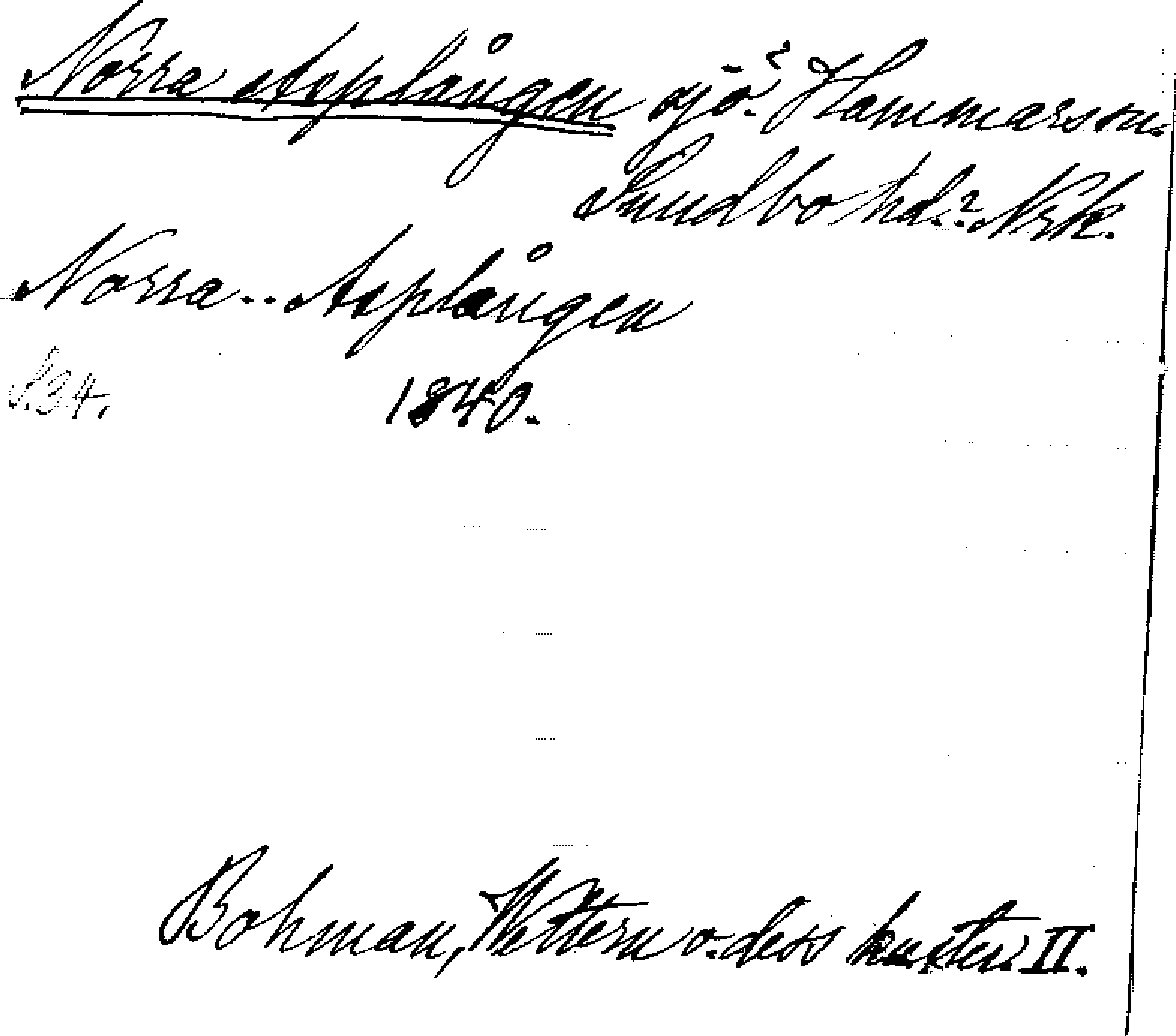 Norra Asplången sjö? Hammar sn.
Sundbo hd? Nrk.
Norra.. Asplången
S.34. 1840.
Bohman, Wettern o. dess kuster. II.